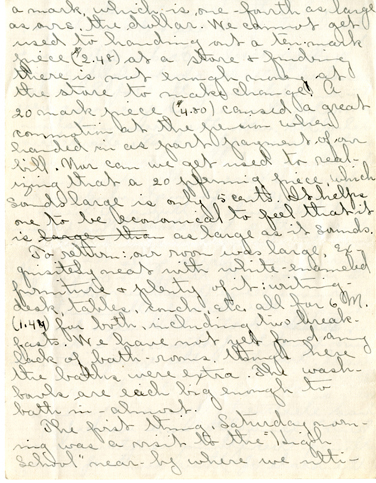 a mark, which is one fourth as large
as ours, the dollar. We cannot get
used to handing out a ten-mark
piece ($2.48) at a store & finding
there is not enough money at
the store to make change! A
20 mark piece ($4.80) caused a great
commotion at the pension when
handed in as part payment of our
bill. Nor can we get used to real-
izing that a 20 pfennig piece, which
sounds large is only 5 cents. It helps
one to be economical to feel that it
is larger than as large as it sounds.
To return: our room was large, ex-
quisitely neat with white-enameled
furniture & plenty of it: writing
desk, tables, couch, etc. all for 6 M.
(1.44) for both, including two break-
fasts. We have not yet found any
lack of bath-rooms, though here
the baths were extra. The wash-
bowls are each big enough to
bathe in - almost.
The first thing, Saturday morn-
ing was a visit to the "High
School" near-by where we ulti-